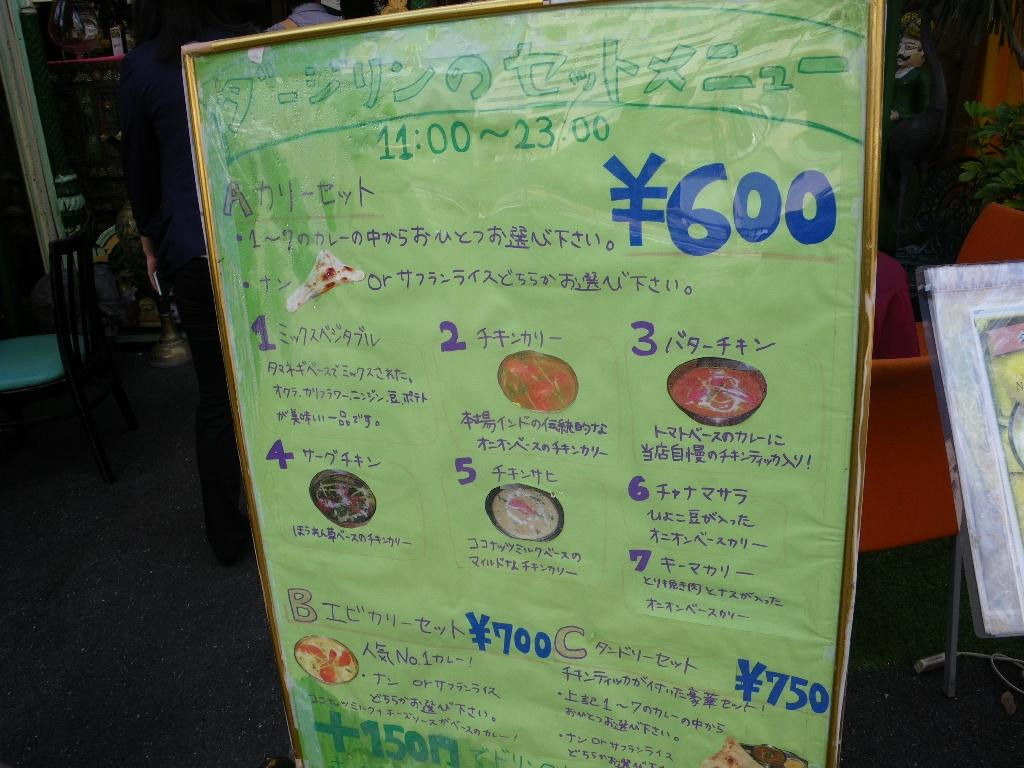 ダージリンのセットメニュー
11:00～23:00
¥600
A カリーセット
・1～7のカレーの中からおひとつお選び下さい。
・ナン or サフランライスどちらかお選び下さい。
1 ミックスベジタブル
タマネギベースでミックスされた、
オクラ、カリフラワー、ニンジン、豆、ポテト
が美味しい一品です。
2 チキンカリー
本場インドの伝統的な
オニオンベースのチキンカリー
3 バターチキン
トマトベースのカレーに
当店自慢のチキンティッカ入り!
4 サーグチキン
ほうれん草ベースのチキンカリー
5 チキンサヒ
ココナッツミルクベースの
マイルドなチキンカリー
6 チャナマサラ
ひよこ豆が入った
オニオンベースカリー
7 キーマカリー
とり挽き肉とナスが入った
オニオンベースカリー
B エビカリーセット ¥700
人気No.1カレー!
・ナン or サフランライス
どちらかお選び下さい。
ココナッツミルクとチーズソースがベースのカレー!
C タンドリーセット
¥750
チキンティッカが付いた豪華セット!
・上記1～7のカレーの中から
おひとつお選び下さい。
・ナン or サフランライス
どちらかお選び下さい。
+150円でドリン